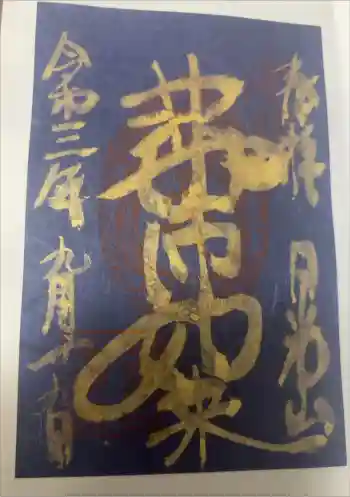 奉拝 日光山
薬師如来
令和三年 九月十九日